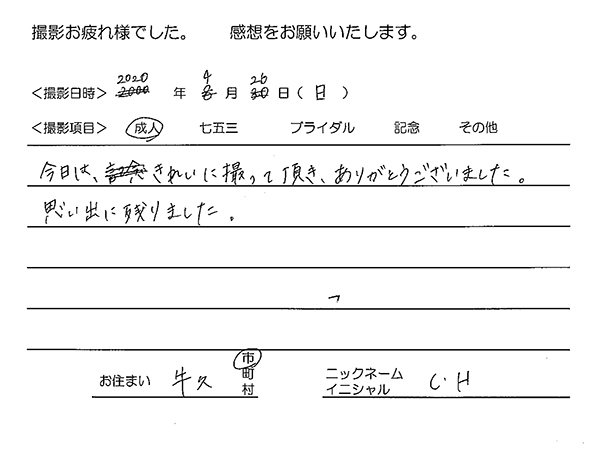 撮影お疲れ様でした。 感想をお願いいたします。
<撮影日時> 2020 年 4 月 26 日(日)
<撮影項目> 成人 七五三 ブライダル 記念 その他
今日は、きれいに撮って頂き、ありがとうございました。
思い出に残りました。
お住まい 牛久 市町村 ニックネーム イニシャル C・H